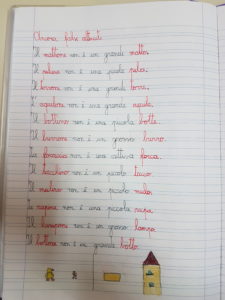 Ancora falsi alterati
Il mattone non è un grande matto.
Il pelino non è una piccola pelo.
Il torrone non è una grande torre.
L'aquilone non è una grande aquila.
Il bottino non è una piccola botte.
Il burrone non è un grosso burro.
La focaccia non è una cattiva foca.
Il tacchino non è un piccolo tacco.
Il mulino non è un piccolo mulo.
La rapina non è una piccola rapa.
Il lampone non è un grosso lampo.
Il bottone non è un grande botto.